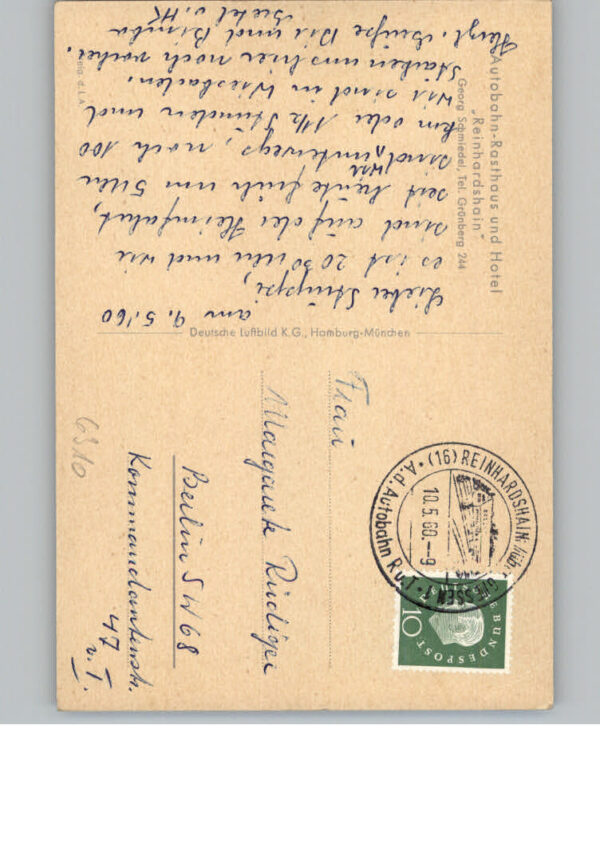 Autobahn-Rasthaus und Hotel
„Reinhardshain"
Georg Schmiedel, Tel. Grünberg 244
Deutsche Luftbild K.G., Hamburg-München
am 9.5.60
Liebe Struppi,
es ist 20³⁰ Uhr und wir
sind auf der Heimfahrt,
seit heute früh um 5 Uhr
sind wir unterwegs, noch 100
km oder 1½ Stunden und
wir sind in Wiesbaden.
Stärken uns hier noch vorher.
Herzl. Grüße Dir und
Frau
Margarete Rüdiger
Berlin SW 68
Kommandantenstr.
47 v. I.
6910
(16) REINHARDSHAIN
GIESSEN 1
A.d. Autobahn
10.5.60.-9
DEUTSCHE BUNDESPOST
10